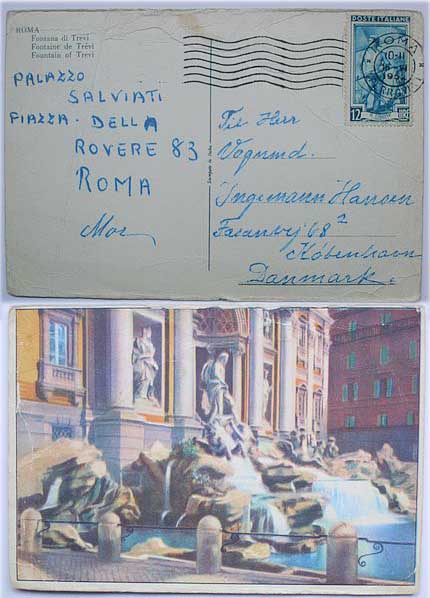 ROMA
Fontana di Trevi
Fontaine de Trévi
Fountain of Trevi
PALAZZO
SALVIATI
PIAZZA. DELLA
ROVERE 83
ROMA
Mor
POSTE ITALIANE
12
ROMA
10-11
FERROVIA
Til Herr
Vognmd.
Ingemann Hansen
Fasanvej 68 2
København
Danmark.